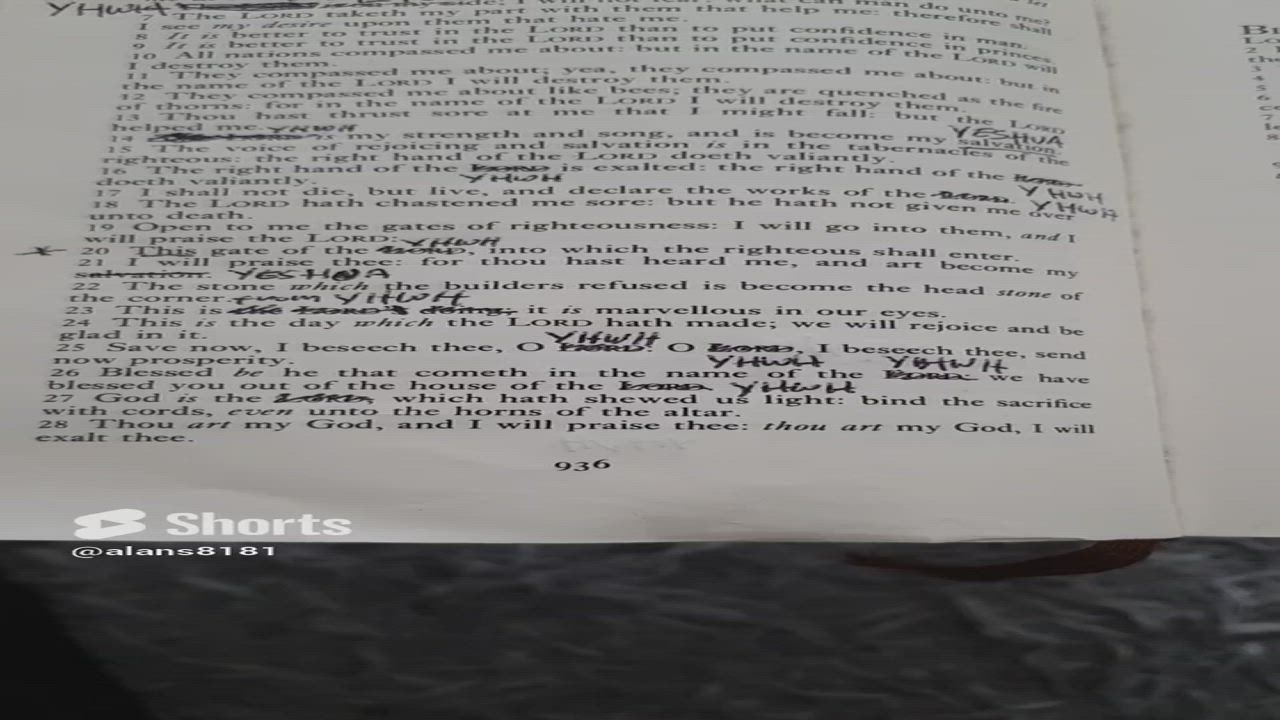 YHWH side; I will not fear: what can man do unto me?
7 The LORD taketh my part with them that help me: therefore shall
I see my desire upon them that hate me.
8 It is better to trust in the LORD than to put confidence in man.
9 It is better to trust in the LORD than to put confidence in princes.
10 All nations compassed me about: but in the name of the LORD will
I destroy them.
11 They compassed me about; yea, they compassed me about: but in
the name of the LORD I will destroy them.
12 They compassed me about like bees; they are quenched as the fire
of thorns: for in the name of the LORD I will destroy them.
13 Thou hast thrust sore at me that I might fall: but the LORD
helped me YHWH
14 is my strength and song, and is become my salvation. YESHUA
15 The voice of rejoicing and salvation is in the tabernacles of the
righteous: the right hand of the LORD doeth valiantly.
16 The right hand of the LORD is exalted: the right hand of the LORD
doeth valiantly. YHWH YHWH
17 I shall not die, but live, and declare the works of the LORD. YHWH
18 The LORD hath chastened me sore: but he hath not given me over
unto death.
19 Open to me the gates of righteousness: I will go into them, and I
will praise the LORD: YHWH
20 This gate of the LORD, into which the righteous shall enter.
21 I will praise thee: for thou hast heard me, and art become my
salvation. YESHUA
22 The stone which the builders refused is become the head stone of
the corner. from YHWH
23 This is the LORD'S doing; it is marvellous in our eyes.
24 This is the day which the LORD hath made; we will rejoice and be
glad in it. YHWH
25 Save now, I beseech thee, O LORD: O LORD, I beseech thee, send
now prosperity. YHWH YHWH
26 Blessed be he that cometh in the name of the LORD: we have
blessed you out of the house of the LORD. YHWH
27 God is the LORD, which hath shewed us light: bind the sacrifice
with cords, even unto the horns of the altar.
28 Thou art my God, and I will praise thee: thou art my God, I will
exalt thee.
936
Shorts
@alans8181